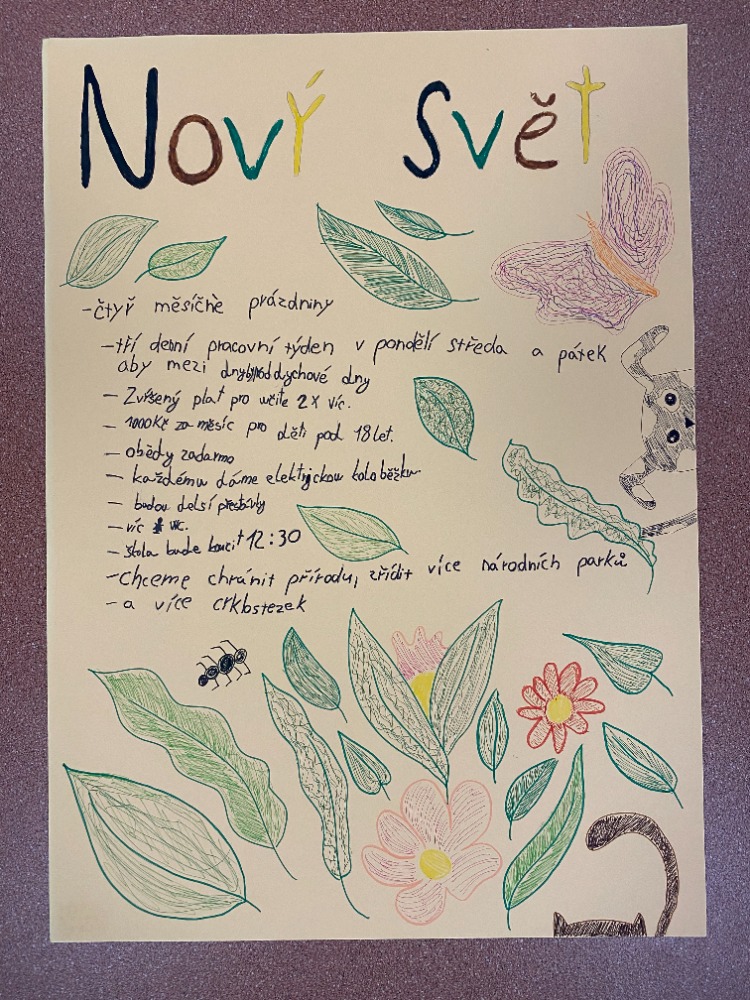 Nový svět
-čtyř měsíčne prázdniny
-tří dební pracovní týden v pondělí středa a pátek
aby mezi dny dudychové dny
- Zvíšený plat pro učite 2x víc.
- 1000Kč za měsíc pro děti pod 18 let.
- obědy zadarmo
- každému dáme elektrickou koloběžku
- budou delsí přestávky
- víc
- škola bude končit 12:30
-Chceme chránit přírodu, zřídit více národních parků
- a více crkbstezek